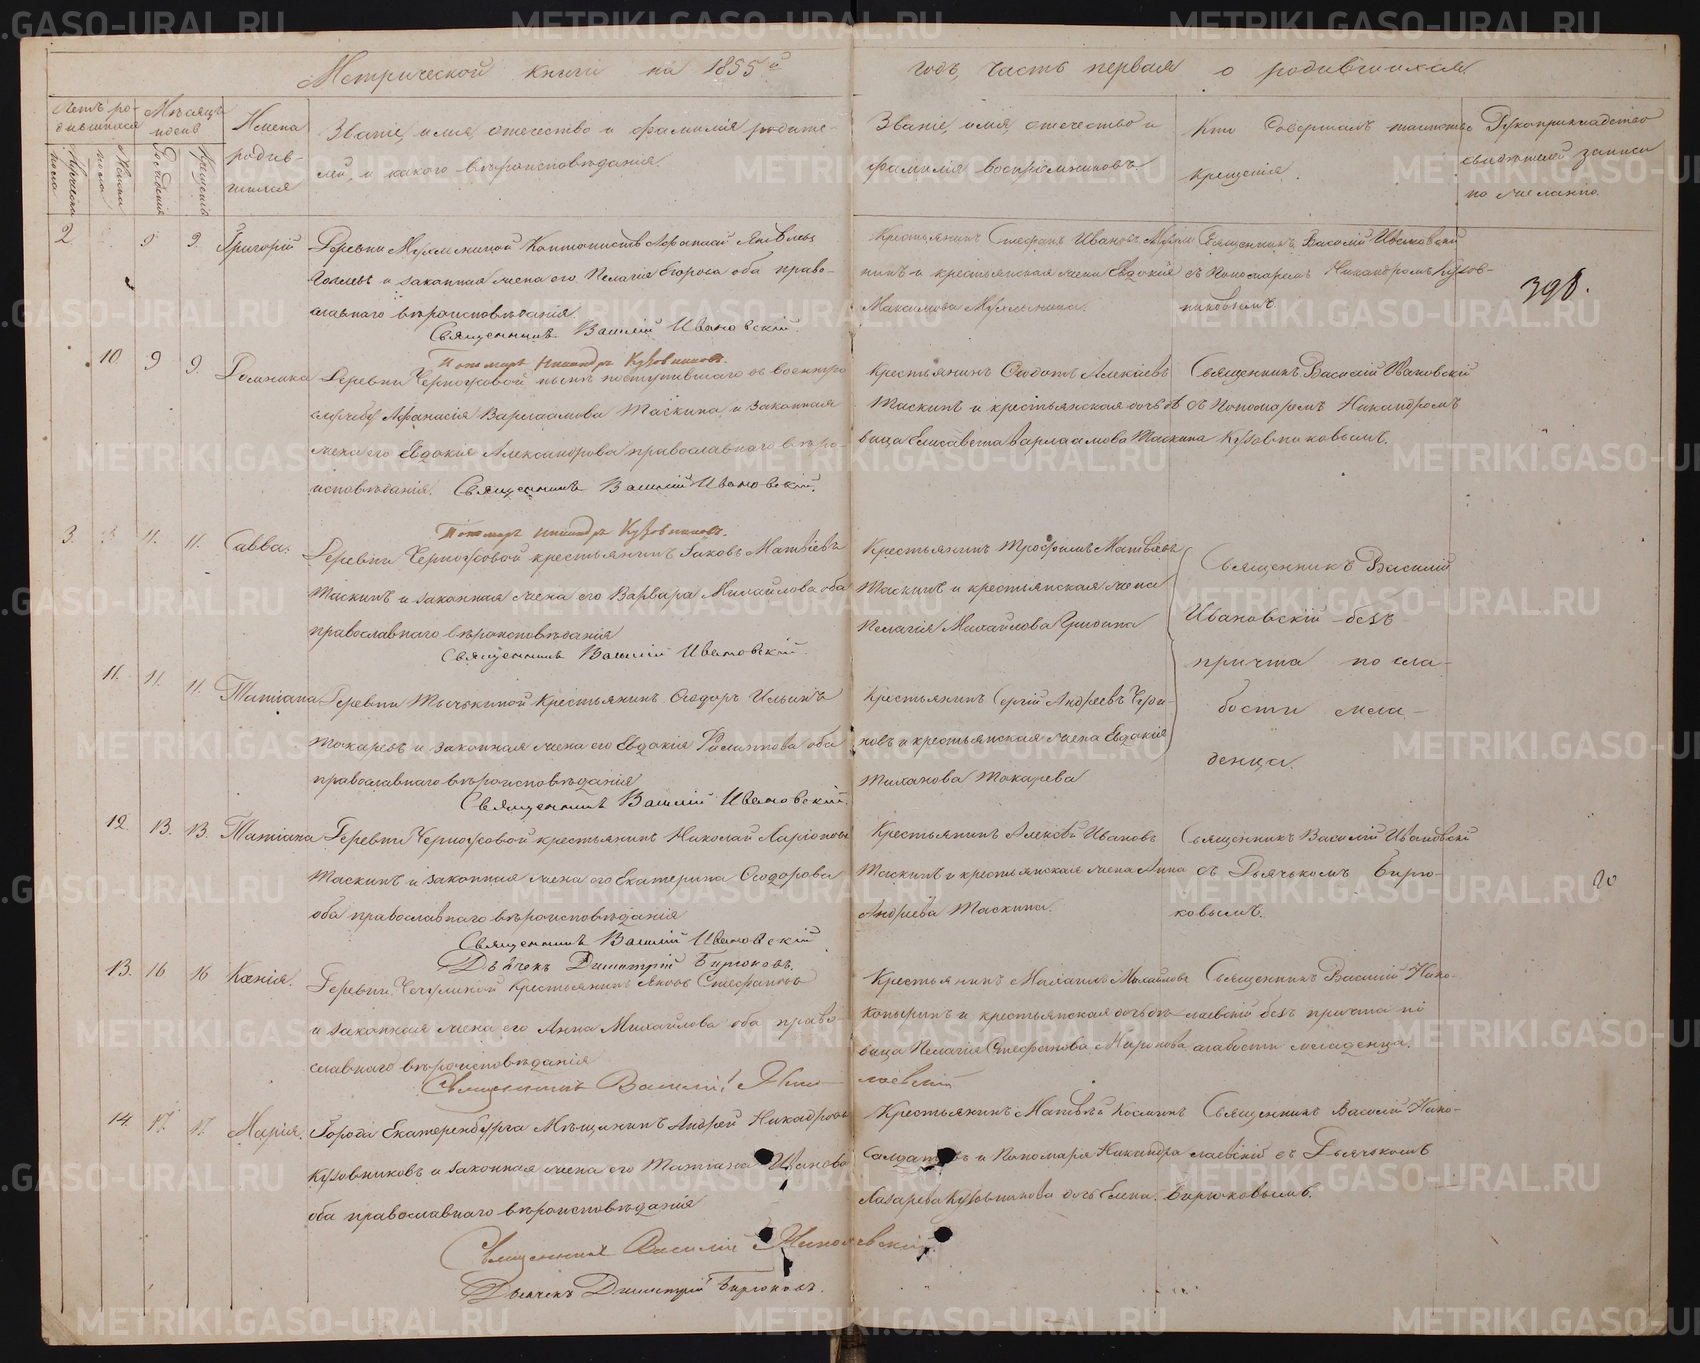 Метрической книги на 1855й
годъ, часть первая о родившихся.
Счетъ родившихся
Мужеска пола
Женска пола
Мѣсяцъ и день
Рожденія
Крещенія
Имена родившихся
Званіе, имя, отечество и фамилія родителей, и какого вѣроисповѣданія
Званіе, имя, отечество и фамилія воспріемниковъ.
Кто совершалъ таинство крещенія.
Рукоприкладство свидѣтелей записи по желанію.
2
9 9. Григорій
и законная жена его Пелагія Егорова оба право-
славнаго вѣроисповѣданія.
Священникъ Василій Ивановскій.
Пономарь Никандръ Кузовниковъ.
Крестьянинъ Стефанъ Ивановъ
и крестьянская жена Евдокія
Максимова
Священникъ Василій Ивановскій
съ Пономаремъ Никандромъ Кузов-
никовымъ.
398.
10 9 9.
Деревни поступившаго въ военную
службу Афанасія Варлаамова Таскина, и законная
жена его Евдокія Александрова православнаго вѣро-
исповѣданія. Священникъ Василій Ивановскій.
Пономарь Никандръ Кузовниковъ.
Крестьянинъ Федотъ Алексѣевъ
Таскинъ и крестьянская дочь дѣ-
вица Елисавета Варлаамова Таскина
Священникъ Василій Ивановскій
съ Пономаремъ Никандромъ
Кузовниковымъ.
3. 11. 11. Савва.
Деревни крестьянинъ Іаковъ Матвѣевъ
Таскинъ и законная жена его Варвара Михайлова оба
православнаго вѣроисповѣданія
Священникъ Василій Ивановскій.
Крестьянинъ Трофимъ Матвѣевъ
Таскинъ и крестьянская жена
Пелагія Михайлова
Священникъ Василій
Ивановскій безъ
причта по сла-
бости мла-
денца.
11. 11. 11. Татіана
Деревни крестьянинъ Ѳеодоръ Ильинъ
Токаревъ и законная жена его Евдокія Филиппова оба
православнаго вѣроисповѣданія
Священникъ Василій Ивановскій.
Крестьянинъ Сергій Андреевъ
и крестьянская жена Евдокія
Токарева
12. 13. 13. Татіана
Деревни крестьянинъ Николай Ларіоновъ
Таскинъ и законная жена его Екатерина Ѳеодорова
оба православнаго вѣроисповѣданія
Священникъ Василій Ивановскій
Дьячекъ Димитрій Бирюковъ.
Крестьянинъ Алексѣй Ивановъ
Таскинъ и крестьянская жена Анна
Андреева Таскина.
Священникъ Василій Ивановскій
съ Дьячькомъ Бирю-
ковымъ.
20
13. 16 16 Ксенія.
Деревни крестьянинъ Яковъ Стефановъ
и законная жена его Анна Михайлова оба право-
славнаго вѣроисповѣданія
Священникъ Василій Нико-
лаевскій
Крестьянинъ Михайловъ
Копыринъ и крестьянская дочь дѣ-
вица Пелагія Стефанова Миронова
Священникъ Василій Нико-
лаевскій безъ причта по
слабости младенца.
14. 17. 17. Марія.
Города Екатеринбурга Мѣщанинъ Андрей Никандровъ
Кузовниковъ и законная жена его Татіана Иванова
оба православнаго вѣроисповѣданія
Священникъ Василій Николаевскій.
Дьячекъ Димитрій Бирюковъ.
Крестьянинъ Матвѣй Косминъ
Солдатовъ и Пономаря Никандра
Лазарева Кузовникова дочь Елена.
Священникъ Василій Нико-
лаевскій съ Дьячькомъ
Бирюковымъ.
METRIKI.GASO-URAL.RU